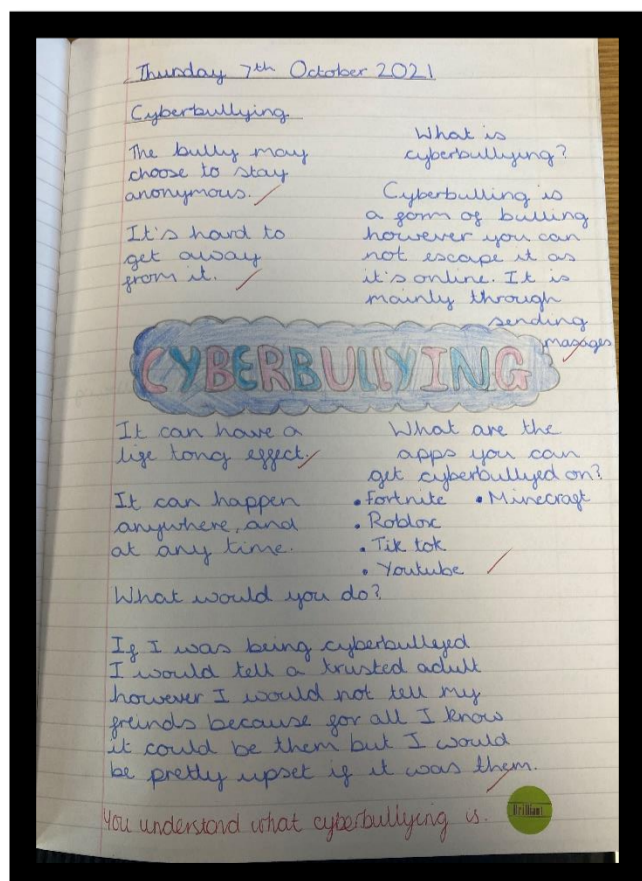 Thursday 7th October 2021
Cyberbullying
The bully may
choose to stay
anonymous.
It's hard to
get away
from it.
What is
cyberbullying?
Cyberbulling is
a form of bulling
however you can
not escape it as
it's online. It is
mainly through
sending
masages
CYBERBULLYING
It can have a
life long effect.
It can happen
anywhere, and
at any time.
What are the
apps you can
get cyberbullyed on?
• Fortnite • Minecraft
• Roblox
• Tik tok
• Youtube
What would you do?
If I was being cyberbulleyed
I would tell a trusted adult
however I would not tell my
freinds because for all I know
it could be them but I would
be pretty upset if it was them.
You understand what cyberbullying is.
Brilliant